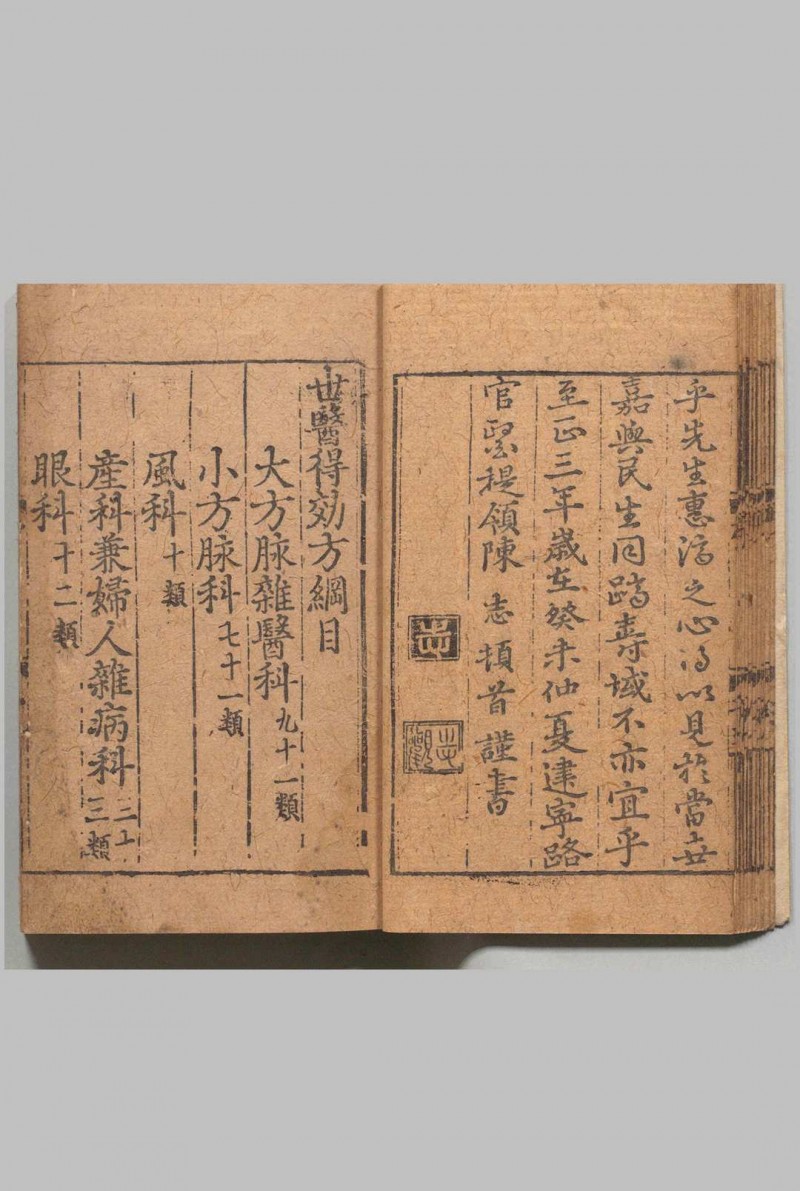 乎先生惠濟之心得以見於當世
嘉與民生同躋壽域不亦宜乎
至正三年歲在癸未仲夏建寧路
官醫提領陳志頓首謹書
世醫得効方綱目
大方脉雜醫科九十一類
小方脉科七十一類
風科十類
産科兼婦人雜病科三十三類
眼科十二類